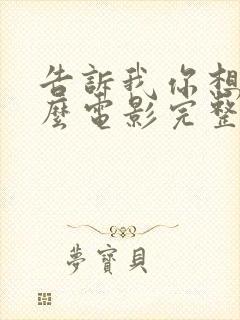 告訴我你想
麼電影完整
夢寶貝